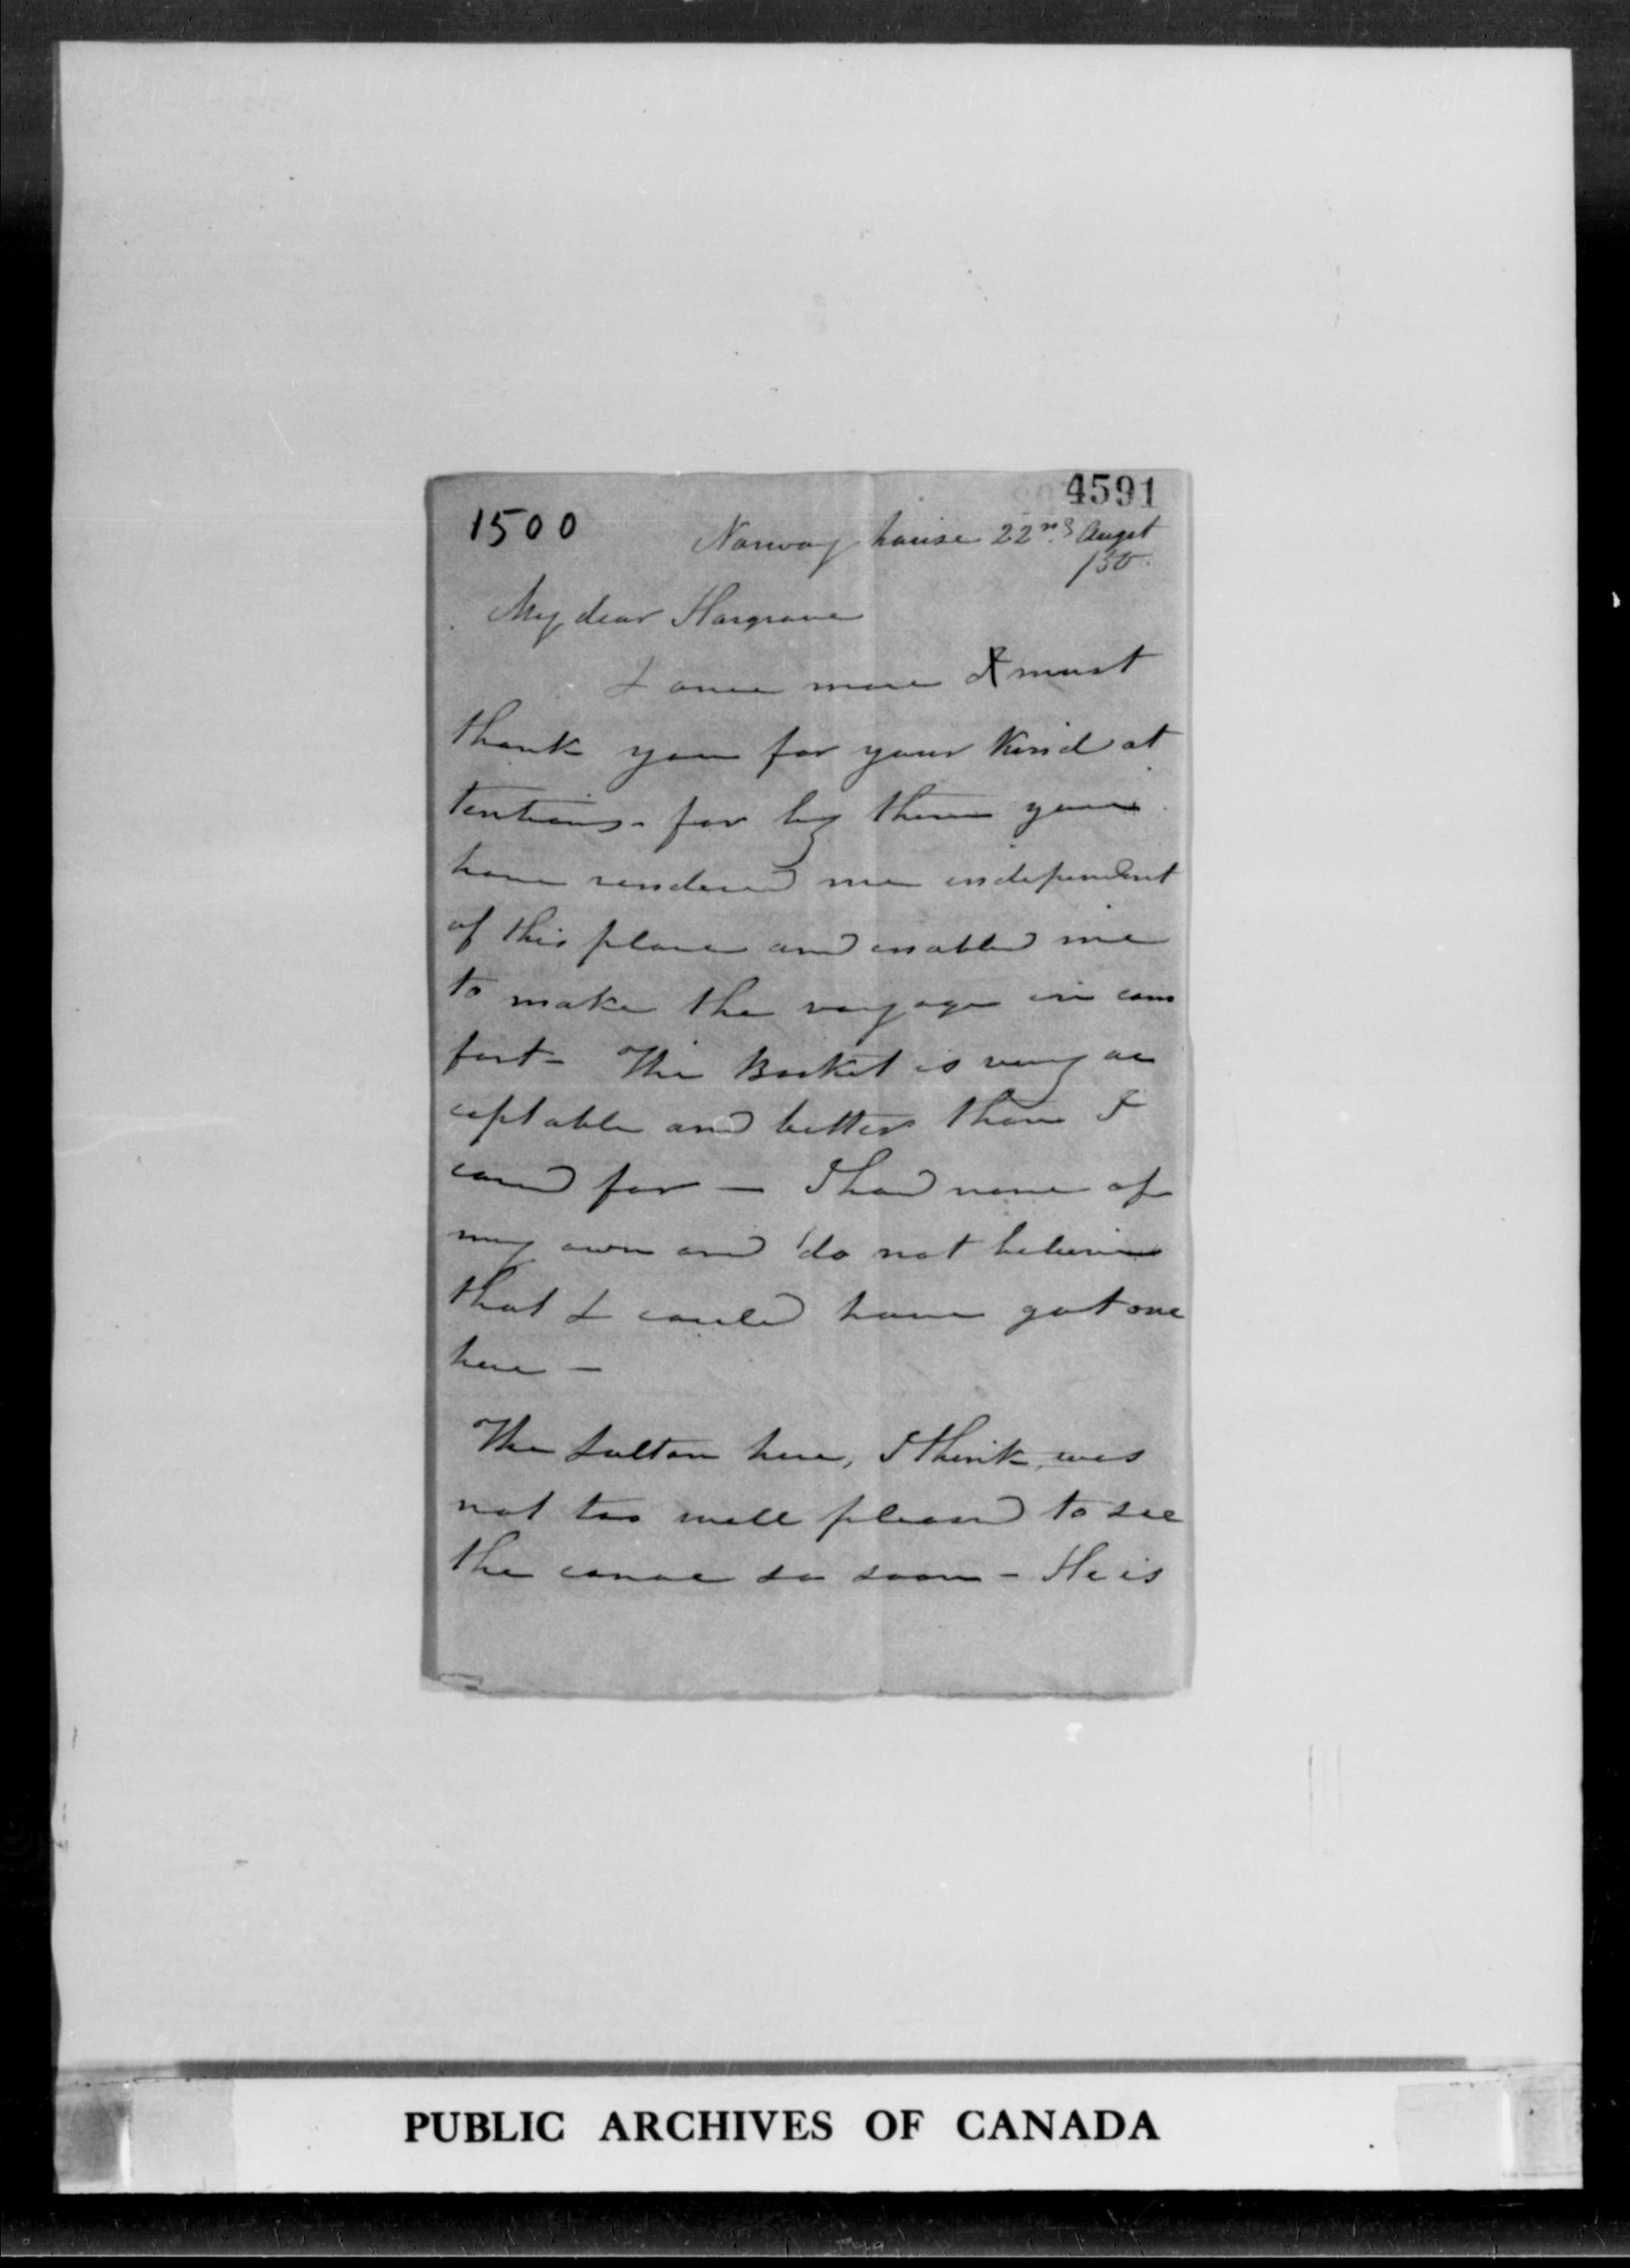 4591
1500
Norway house 22nd Augst
/50.
My dear Hargrave
I once more I must
thank you for your kind at
tentions - for by them you
have rendered me independent
of this place and enabled me
to make the voyage in com
fort - The Basket is very ac
ceptable and better than I
cared for — I had none of
my own and do not believe
that I could have got one
here —
The Sultan here, I think was
not too well pleased to see
the canoe so soon - He is
PUBLIC ARCHIVES OF CANADA